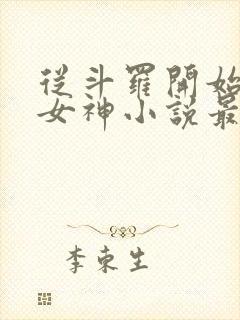 從斗羅開始
女神小說最
李東生